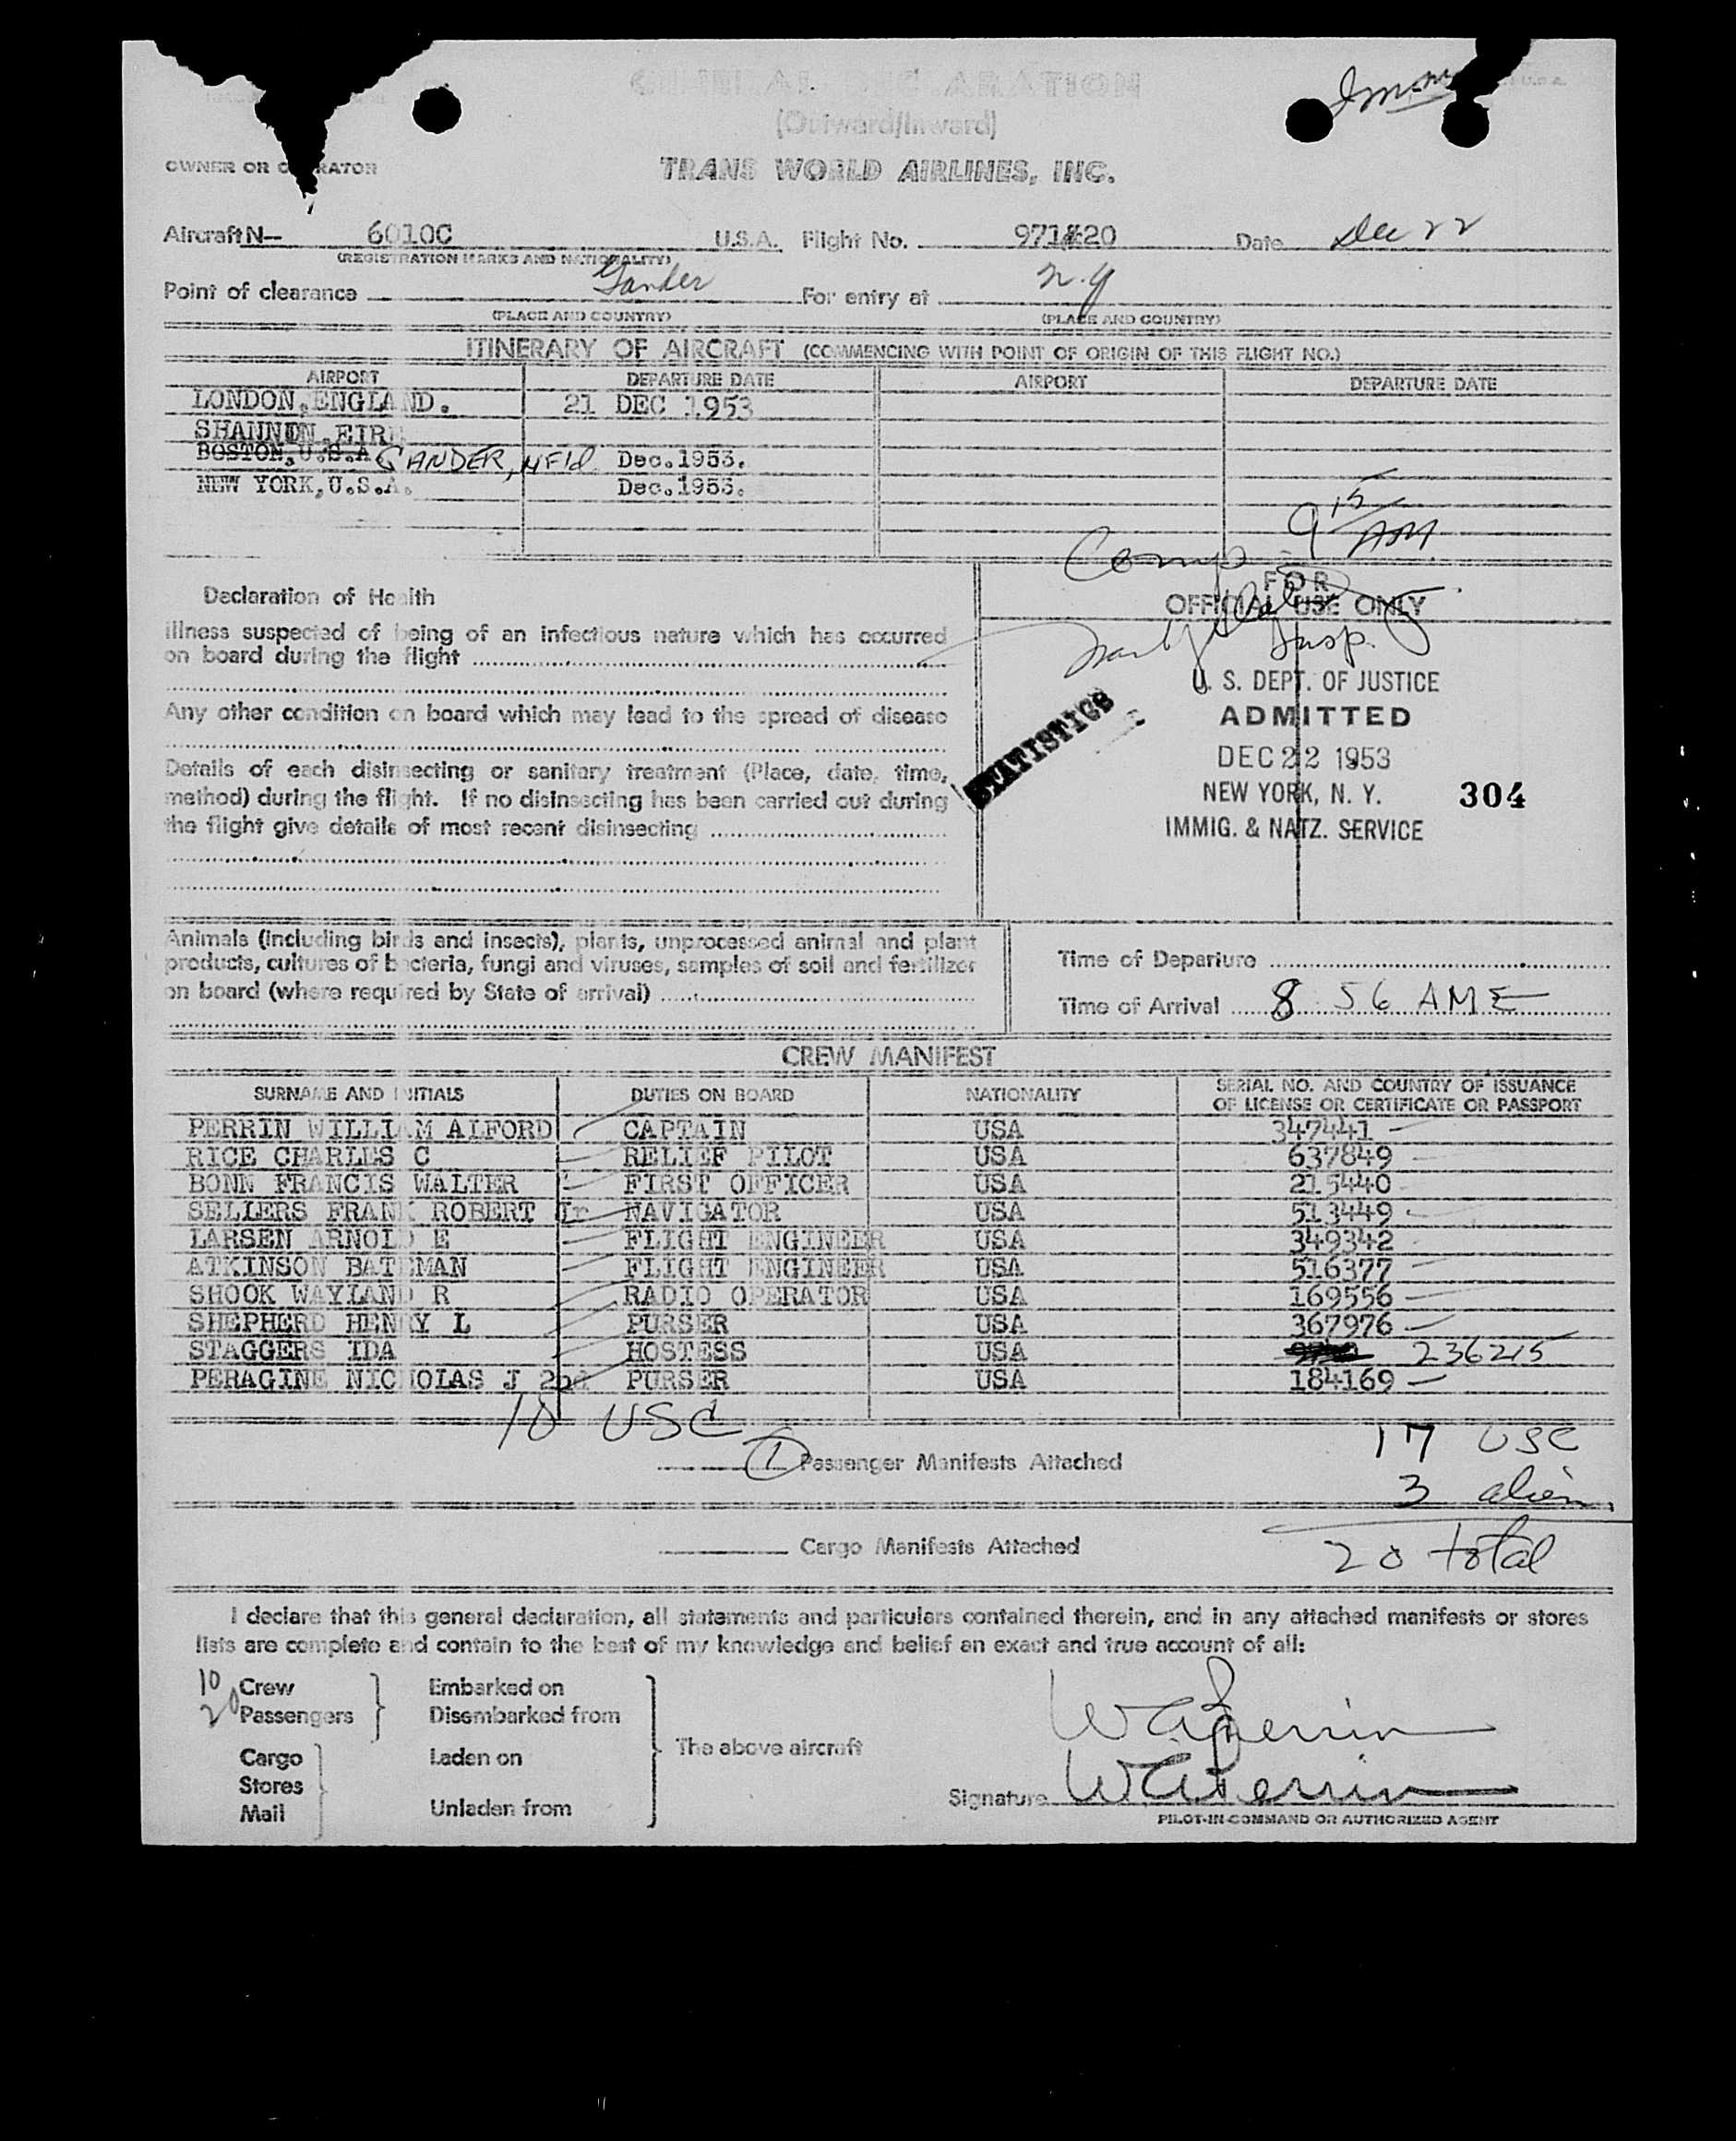 GENERAL DECLARATION
(Outward/Inward)
OWNER OR OPERATOR TRANS WORLD AIRLINES, INC.
Aircraft N- 6010C U.S.A. Flight No. 971 20 Date Dec 22
(REGISTRATION MARKS AND NATIONALITY)
Point of clearance Gander For entry at N.Y
(PLACE AND COUNTRY) (PLACE AND COUNTRY)
ITINERARY OF AIRCRAFT (COMMENCING WITH POINT OF ORIGIN OF THIS FLIGHT NO.)
AIRPORT DEPARTURE DATE AIRPORT DEPARTURE DATE
LONDON, ENGLAND. 21 DEC 1953
SHANNON, EIRE
BOSTON, U.S.A GANDER, NFld Dec.1953.
NEW YORK, U.S.A. Dec.1953.
Comp 9 15 AM
FOR
OFFICIAL USE ONLY
Insp.
U. S. DEPT. OF JUSTICE
ADMITTED
DEC 22 1953
NEW YORK, N. Y. 304
IMMIG. & NATZ. SERVICE
STATISTICS
Declaration of Health
Illness suspected of being of an infectious nature which has occurred
on board during the flight
Any other condition on board which may lead to the spread of disease
Details of each disinsecting or sanitary treatment (Place, date, time,
method) during the flight. If no disinsecting has been carried out during
the flight give details of most recent disinsecting
Animals (including birds and insects), plants, unprocessed animal and plant
products, cultures of bacteria, fungi and viruses, samples of soil and fertilizer
on board (where required by State of arrival)
Time of Departure
Time of Arrival 8 56 AM E
CREW MANIFEST
SURNAME AND INITIALS DUTIES ON BOARD NATIONALITY SERIAL NO. AND COUNTRY OF ISSUANCE
OF LICENSE OR CERTIFICATE OR PASSPORT
PERRIN WILLIAM ALFORD CAPTAIN USA 347441
RICE CHARLES C RELIEF PILOT USA 637849
BONN FRANCIS WALTER FIRST OFFICER USA 215440
SELLERS FRANK ROBERT Jr NAVIGATOR USA 513449
LARSEN ARNOLD E FLIGHT ENGINEER USA 349342
ATKINSON BATEMAN FLIGHT ENGINEER USA 516377
SHOOK WAYLAND R RADIO OPERATOR USA 169556
SHEPHERD HENRY L PURSER USA 367976
STAGGERS IDA HOSTESS USA 236215
PERAGINE NICHOLAS J 2nd PURSER USA 184169
10 USC
1 Passenger Manifests Attached 17 USC
3 alien
Cargo Manifests Attached 20 total
I declare that this general declaration, all statements and particulars contained therein, and in any attached manifests or stores
lists are complete and contain to the best of my knowledge and belief an exact and true account of all:
10 Crew Embarked on
20 Passengers Disembarked from
The above aircraft
Cargo Laden on
Stores
Mail Unladen from
WAPerrin
Signature WAPerrin
PILOT-IN-COMMAND OR AUTHORIZED AGENT